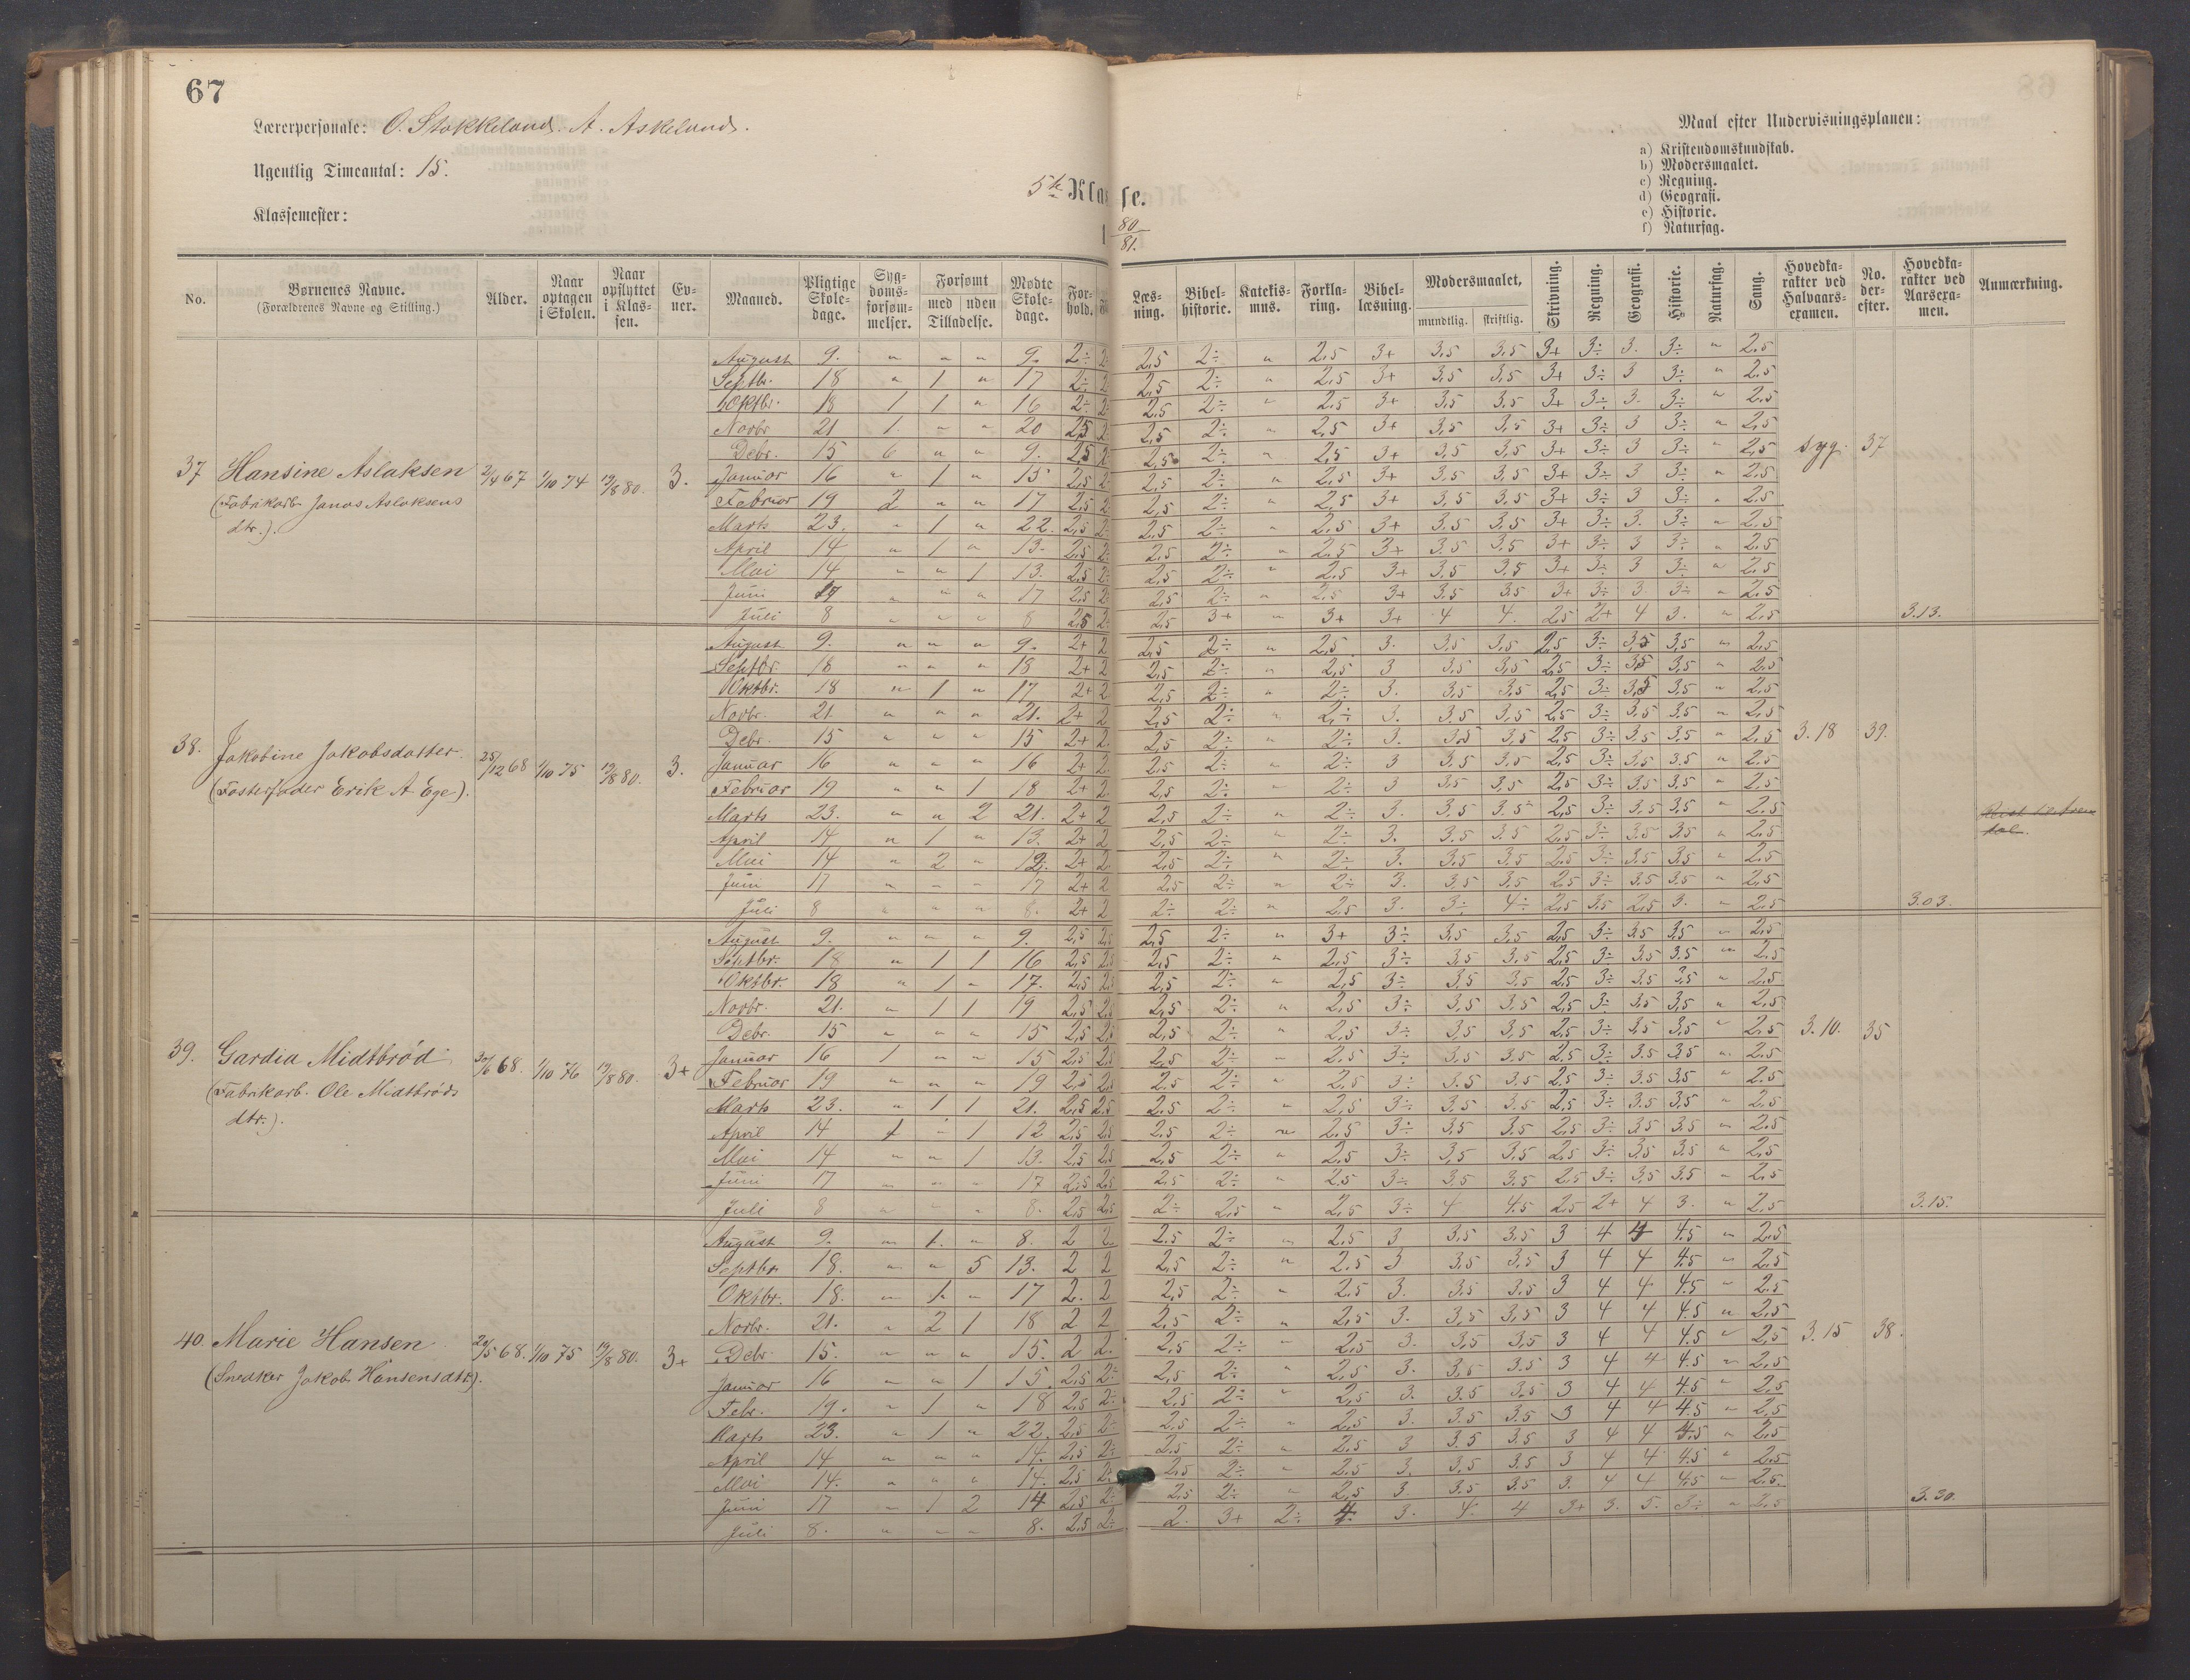 67
Lærerpersonale: O. Stokkeland. A. Askeland.
Ugentlig Timeantal: 15.
Klassemester:
5te Klasse.
1 80/81.
Maal efter Undervisningsplanen:
a) Kristendomskundskab.
b) Modersmaalet.
c) Regning.
d) Geografi.
e) Historie.
f) Naturfag.
No. Børnenes Navne. (Forældrenes Navne og Stilling.) Alder. Naar optagen i Skolen. Naar opflyttet i Klassen. Evner. Maaned. Pligtige Skoledage. Sygdomsforsømmelser. Forsømt med uden Tilladelse. Mødte Skoledage. Forhold. Læsning. Bibelhistorie. Katekismus. Forklaring. Bibellæsning. Modersmaalet, mundtlig. skriftlig. Skrivning. Regning. Geografi. Historie. Naturfag. Sang. Hovedkarakter ved Halvaarsexamen. No. derefter. Hovedkarakter ved Aarsexamen. Anmærkning.
37 Hansine Aslaksen 2/4 67 1/10 74 19/8 80. 3.
(Fabrikarb. Janas Aslaksens
dtr.).
August 9. " " " 9. 2÷ 2 2,5 2÷ " 2,5 3+ 3,5 3,5 3+ 3÷ 3. 3÷ " 2,5
Septbr. 18 " 1 " 17 2÷ 2 2,5 2÷ " 2,5 3+ 3,5 3,5 3+ 3÷ 3 3÷ " 2,5
Oktbr. 18 1 1 " 16 2÷ 2 2,5 2÷ " 2,5 3+ 3,5 3,5 3+ 3÷ 3. 3÷ " 2,5
Novbr 21 1. " " 20 2,5 2 2,5 2÷ " 2,5 3+ 3,5 3,5 3+ 3÷ 3 3÷ " 2,5
Debr. 15 6 " " 9. 2,5 2 2,5 2÷ " 2,5 3+ 3,5 3,5 3+ 3÷ 3 3÷ " 2,5 syg. 37
Januar 16 " 1 " 15 2,5 2 2,5 2÷ " 2,5 3+ 3,5 3,5 3+ 3÷ 3 3÷ " 2,5
Februar 19 2 " " 17 2,5 2 2,5 2÷ " 2,5 3+ 3,5 3,5 3+ 3÷ 3 3÷ " 2,5
Marts 23. " 1 " 22. 2,5 2 2,5 2÷ 2,5 3+ 3,5 3,5 3+ 3÷ 3. 3÷ " 2,5
April 14 " 1 " 13. 2,5 2 2,5 2÷ " 2,5 3+ 3,5 3,5 3+ 3÷ 3 3÷ " 2,5
Mai 14 " " 1 13. 2,5 2 2,5 2÷ " 2,5 3+ 3,5 3,5 3+ 3÷ 3 3÷ " 2,5
Juni 17 " " " 17 2,5 2 2,5 2÷ " 2,5 3+ 3,5 3,5 3+ 3÷ 3 3÷ " 2,5
Juli 8 " " " 8 2,5 2 2,5 3+ " 3+ 3+ 4 4. 2,5 2+ 4 3. " 2,5 3.13.
38. Jakobine Jakobsdatter. 25/12 68 1/10 75 19/8 80. 3.
(Fosterfader Erik A. Ege).
August 9. " " " 9. 2+ 2 2,5 2÷ " 2,5 3. 3,5 3,5 2,5 3÷ 3,5 3,5 " 2,5
Septbr. 18 " " " 18 2+ 2 2,5 2÷ " 2,5 3 3,5 3,5 2,5 3÷ 3,5 3,5 " 2,5
Oktbr. 18 " 1 " 17 2+ 2 2,5 2÷ " 2÷ 3. 3,5 3,5 2,5 3÷ 3,5 3,5 " 2,5
Novbr. 21. " " " 21. 2+ 2 2,5 2÷ " 2÷ 3. 3,5 3,5 2,5 3÷ 3,5 3,5 " 2,5
Debr. 15 " " " 15 2+ 2. 2,5 2÷ " 2÷ 3. 3,5 3,5 2,5 3÷ 3,5 3,5 " 2,5 3.18 39.
Januar 16 " " " 16 2+ 2. 2,5 2÷ " 2÷ 3 3,5 3,5 2,5 3÷ 3,5 3,5 " 2,5
Februar 19 " " 1 18 2+ 2. 2,5 2÷ " 2÷ 3 3,5 3,5 2,5 3÷ 3,5 3,5 " 2,5
Marts 23. " " 2 21. 2+ 2 2,5 2÷ " 2÷ 3. 3,5 3,5 2,5 3÷ 3,5 3,5 " 2,5
April 14 " 1 " 13. 2+ 2 2,5 2÷ " 2÷ 3. 3,5 3,5 2,5 3÷ 3,5 3,5 " 2,5
Mai 14 " 2 " 12. 2+ 2 2,5 2÷ " 2÷ 3. 3,5 3,5 2,5 3÷ 3,5 3,5 " 2,5
Juni 17 " " " 17 2+ 2 2,5 2÷ " 2÷ 3. 3,5 3,5 2,5 3÷ 3,5 3,5 " 2,5
Juli 8 " " " 8. 2+ 2 2÷ 2÷ " 2,5 3. 3÷ 4÷ 2,5 3,5 2,5 3. " 2,5 3.03.
39. Gardia Midtbrød 30/6 68. 1/10 76 19/8 80. 3+
(Fabrikarb. Ole Midtbrøds
dtr.).
August 9. " " " 9. 2,5 2,5 2,5 2÷ " 3+ 3÷ 3,5 3,5 2,5 3÷ 3,5 3,5 " 2,5
Septbr. 18 " 1 1 16 2,5 2,5 2,5 2÷ " 2,5 3÷ 3,5 3,5 2,5 3÷ 3,5 3,5 " 2,5
Oktbr. 18 " 1 " 17. 2,5 2,5 2,5 2÷ " 2,5 3÷ 3,5 3,5 2,5 3÷ 3,5 3,5 " 2,5
Novbr. 21. " 1 1 19 2,5 2,5 2,5 2÷ " 2,5 3÷ 3,5 3,5 2,5 3÷ 3,5 3,5 " 2,5
Debr. 15 " " " 15 2,5 2,5 2,5 2÷ " 2,5 3÷ 3,5 3,5 2,5 3÷ 3,5 3,5 " 2,5 3.10. 35
Januar 16 1 " " 15 2,5 2,5 2,5 2÷ " 2,5 3÷ 3,5 3,5 2,5 3÷ 3,5 3,5 " 2,5
Februar 19 " " " 19 2,5 2,5 2,5 2÷ " 2,5 3÷ 3,5 3,5 2,5 3÷ 3,5 3,5 " 2,5
Marts 23. " 1 1 21. 2,5 2,5 2,5 2÷ " 2,5 3÷ 3,5 3,5 2,5 3÷ 3,5 3,5 " 2,5
April 14 1 " 1 12 2,5 2,5 2,5 2÷ " 2,5 3÷ 3,5 3,5 2,5 3÷ 3,5 3,5 " 2,5
Mai 14 " " 1 13. 2,5 2,5 2,5 2÷ " 2,5 3÷ 3,5 3,5 2,5 3÷ 3,5 3,5 " 2,5
Juni 17 " " " 17 2,5 2,5 2,5 2÷ " 2,5 3÷ 3,5 3,5 2,5 3÷ 3,5 3,5 " 2,5
Juli 8 " " " 8. 2,5 2,5 2÷ 2,5 " 2,5 3÷ 4 4,5 2,5 2+ 4 3. " 2,5 3.15.
40. Marie Hansen 29/5 68. 1/10 75 19/8 80. 3+
(Snedker Jakob Hansens dtr).
August 9. " 1. " 8. 2 2. 2,5 2÷ " 2,5 3 3,5 3,5 3 4 4 4,5 " 2,5
Septbr 18. " " 5 13. 2 2 2,5 2÷ " 2,5 3 3,5 3,5 3 4 4 4,5 " 2,5
Oktbr. 18. " 1. " 17 2. 2 2,5 2÷ " 2,5 3. 3,5 3,5 3 4 4 4,5 " 2,5
Novbr. 21. " 2 1 18 2 2 2,5 2÷ " 2,5 3. 3,5 3,5 3 4 4 4,5 " 2,5
Debr. 15. " " " 15. 2 2. 2,5 2÷ " 2,5 3. 3,5 3,5 3 4 4 4,5 " 2,5 3.15 38.
Januar 16 " " 1 15. 2,5 2÷ 2,5 2÷ " 2,5 3. 3,5 3,5 3 4 4 4,5 " 2,5
Febr. 19. " 1 " 18 2,5 2÷ 2,5 2÷ " 2,5 3. 3,5 3,5 3 4 4 4,5 " 2,5
Marts 23. " 1 " 22. 2,5 2÷ 2,5 2÷ " 2,5 3. 3,5 3,5 3 4 4 4,5 " 2,5
April 14 " " " 14. 2,5 2÷ 2,5 2÷ " 2,5 3 3,5 3,5 3 4 4 4,5 " 2,5
Mai 14. " " " 14. 2,5 2÷ 2,5 2÷ " 2,5 3. 3,5 3,5 3 4 4 4,5 " 2,5
Juni 17 " 1 2 14 2,5 2÷ 2,5 2÷ " 2,5 3 3,5 3,5 3. 4 4 4,5 " 2,5
Juli 8. " " " 8. 2,5 2÷ 2. 3+ 2÷ 4. 3. 4. 4 3+ 3. 5. 3÷ " 2,5 3.30.